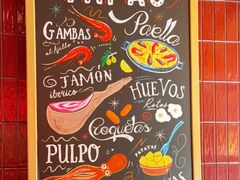 GAMBAS
al Ajillo
Paella
JAMÓN
iberico
HUEVOS
Rotos
Croquetas
PULPO
PATATAS